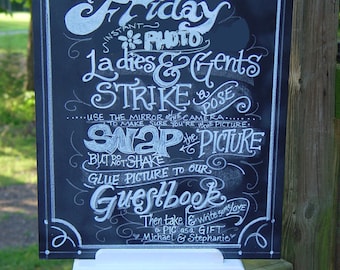 Friday
INSTANT
PHOTO
Ladies & Gents
STRIKE a
POSE
USE THE MIRROR ON THE CAMERA
TO MAKE SURE YOU'RE in the PICTURE
SNAP the PICTURE
BUT DO NOT SHAKE
GLUE PICTURE TO OUR
Guestbook
Then take & Write some love
a PIC as a GIFT
Michael & Stephanie